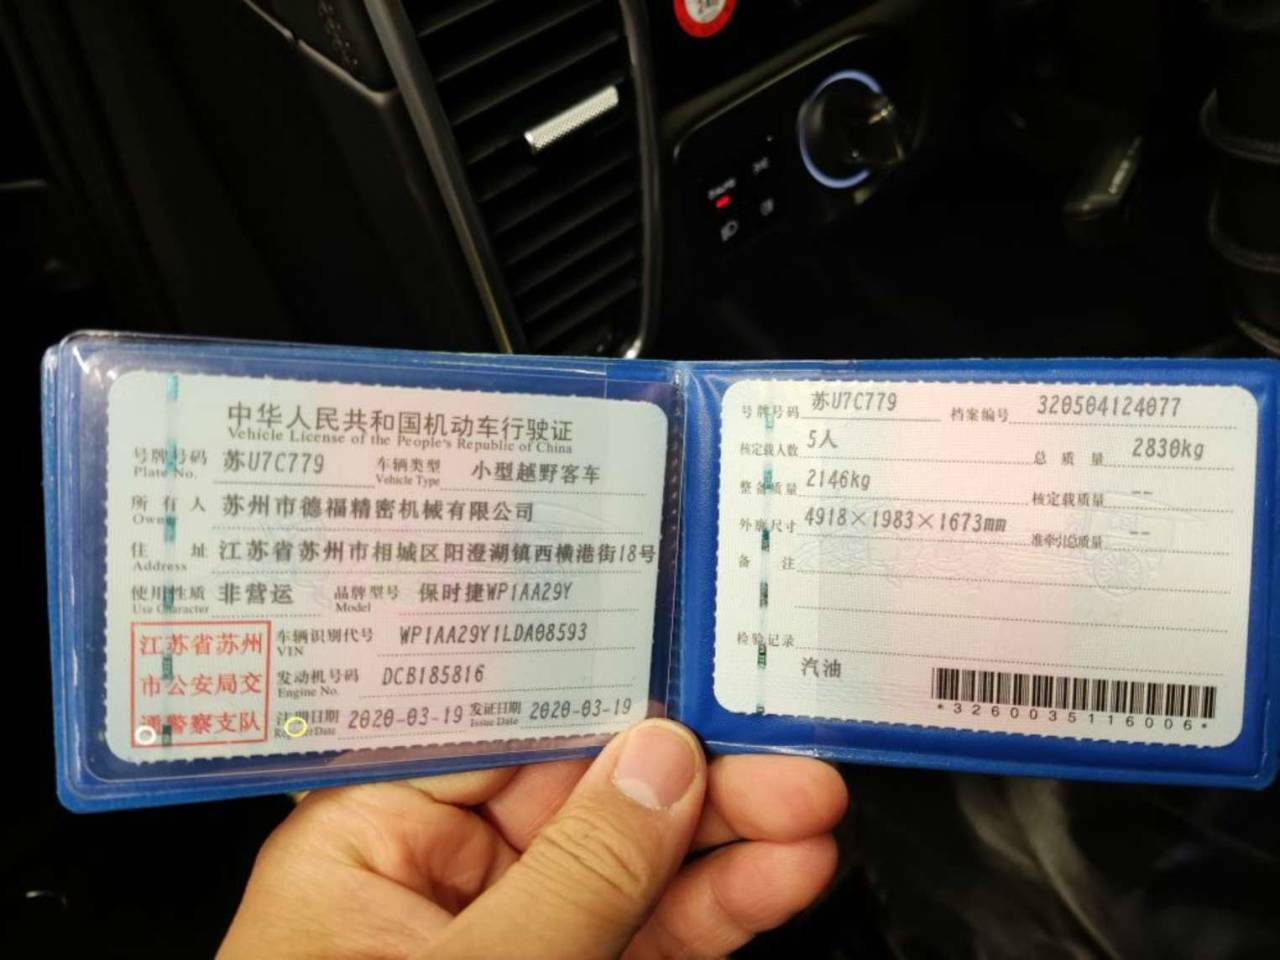 240
AUTO
中华人民共和国机动车行驶证
Vehicle License of the People's Republic of China
号牌号码 苏U7C779 车辆类型 小型越野客车
Plate No. Vehicle Type
所有人 苏州市德福精密机械有限公司
Owner
住址 江苏省苏州市相城区阳澄湖镇西横港街18号
Address
使用性质 非营运 品牌型号 保时捷WP1AA29Y
Use Character Model
江苏省苏州
市公安局交
通警察支队
车辆识别代号 WP1AA29Y1LDA08593
VIN
发动机号码 DCB185816
Engine No.
注册日期 2020-03-19 发证日期 2020-03-19
Register Date Issue Date
号牌号码 苏U7C779 档案编号 320504124077
核定载人数 5人 总质量 2830kg
整备质量 2146kg 核定载质量 --
外廓尺寸 4918×1983×1673mm 准牵引总质量 --
备注
检验记录
汽油
*3260035116006*